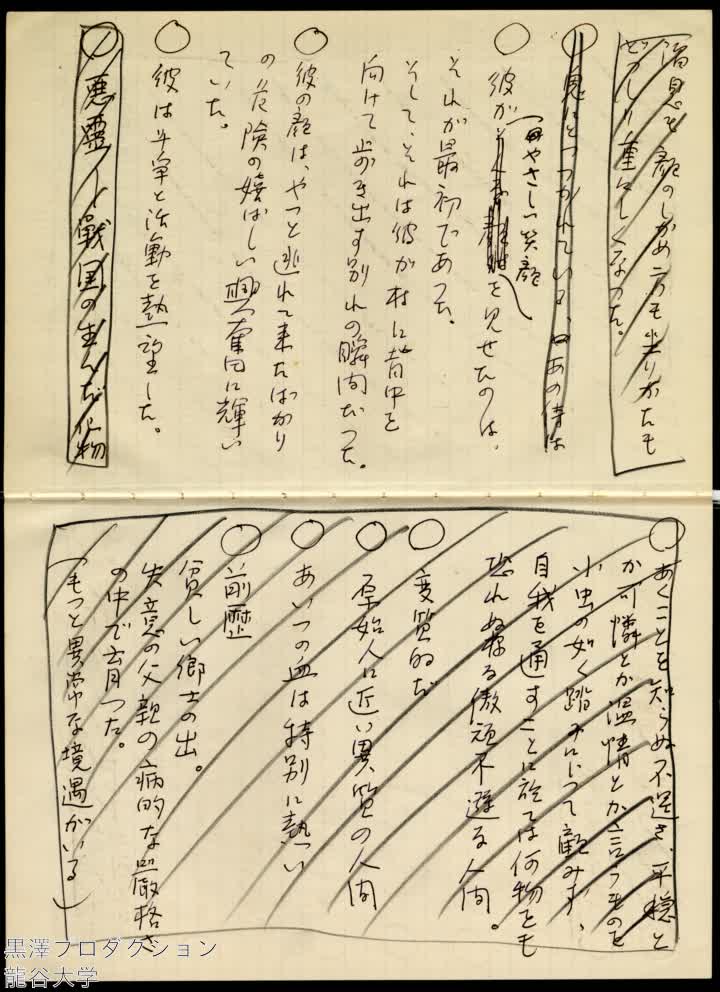 消息も顔のしかめ方も坐りかたも
どつしり重々しくなつた。
鬼にとつつかれている、ぬあの侍は
彼が
一番やさしい笑顔
を見せたのは、
それが最初であつた。
そして、それは彼が村に背中を
向けて歩き出す別れの瞬間だつた。
彼の顔は、やつと逃れて来たばかり
の危険の嬉ばしい興奮に輝い
ていた。
彼は斗争と活動を熱望した。
悪霊―戦国の生んだ化物
あくことを知らぬ不逞さ、平穏と
か可憐とか温情とか言うものを
小虫の如く踏みにじつて顧みず、
自我を通すことに於ては何物をも
恐れぬ
傲頑不遜る人間。
変質的だ
原始人に近い異質の人間
あいつの血は特別に熱い
前歴
貧しい郷士の出。
失意の父親の病的な厳格さ
の中で育つた。
(もつと異常な境遇がいる)
黒澤プロダクション
龍谷大学